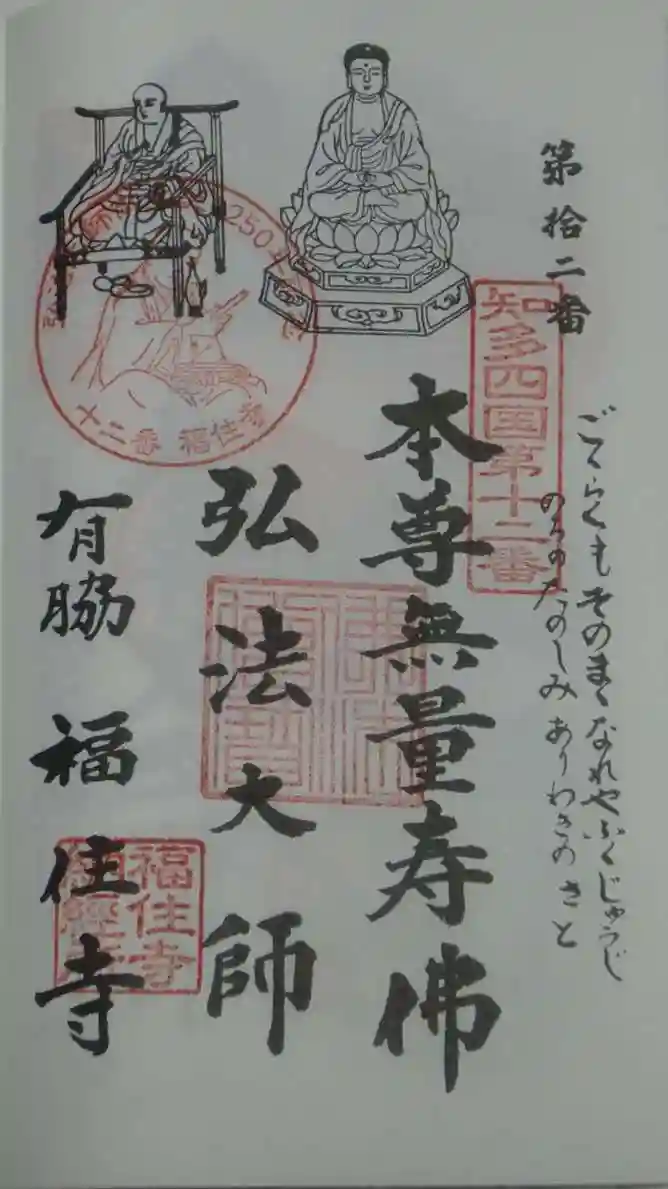 第拾二番
知多四国第十二番
ごくらくもそのまゝなれやふくじゅうじ
のちのたのしみありわきのさと
本尊無量寿佛
弘法大師
有脇 福住寺
十二番 福住寺
福住寺
納経